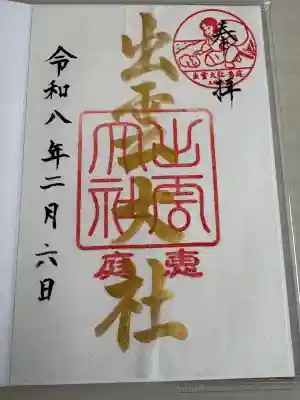 奉拝
出雲大社
出雲大社
恵庭
出雲大社恵庭
令和八年二月六日